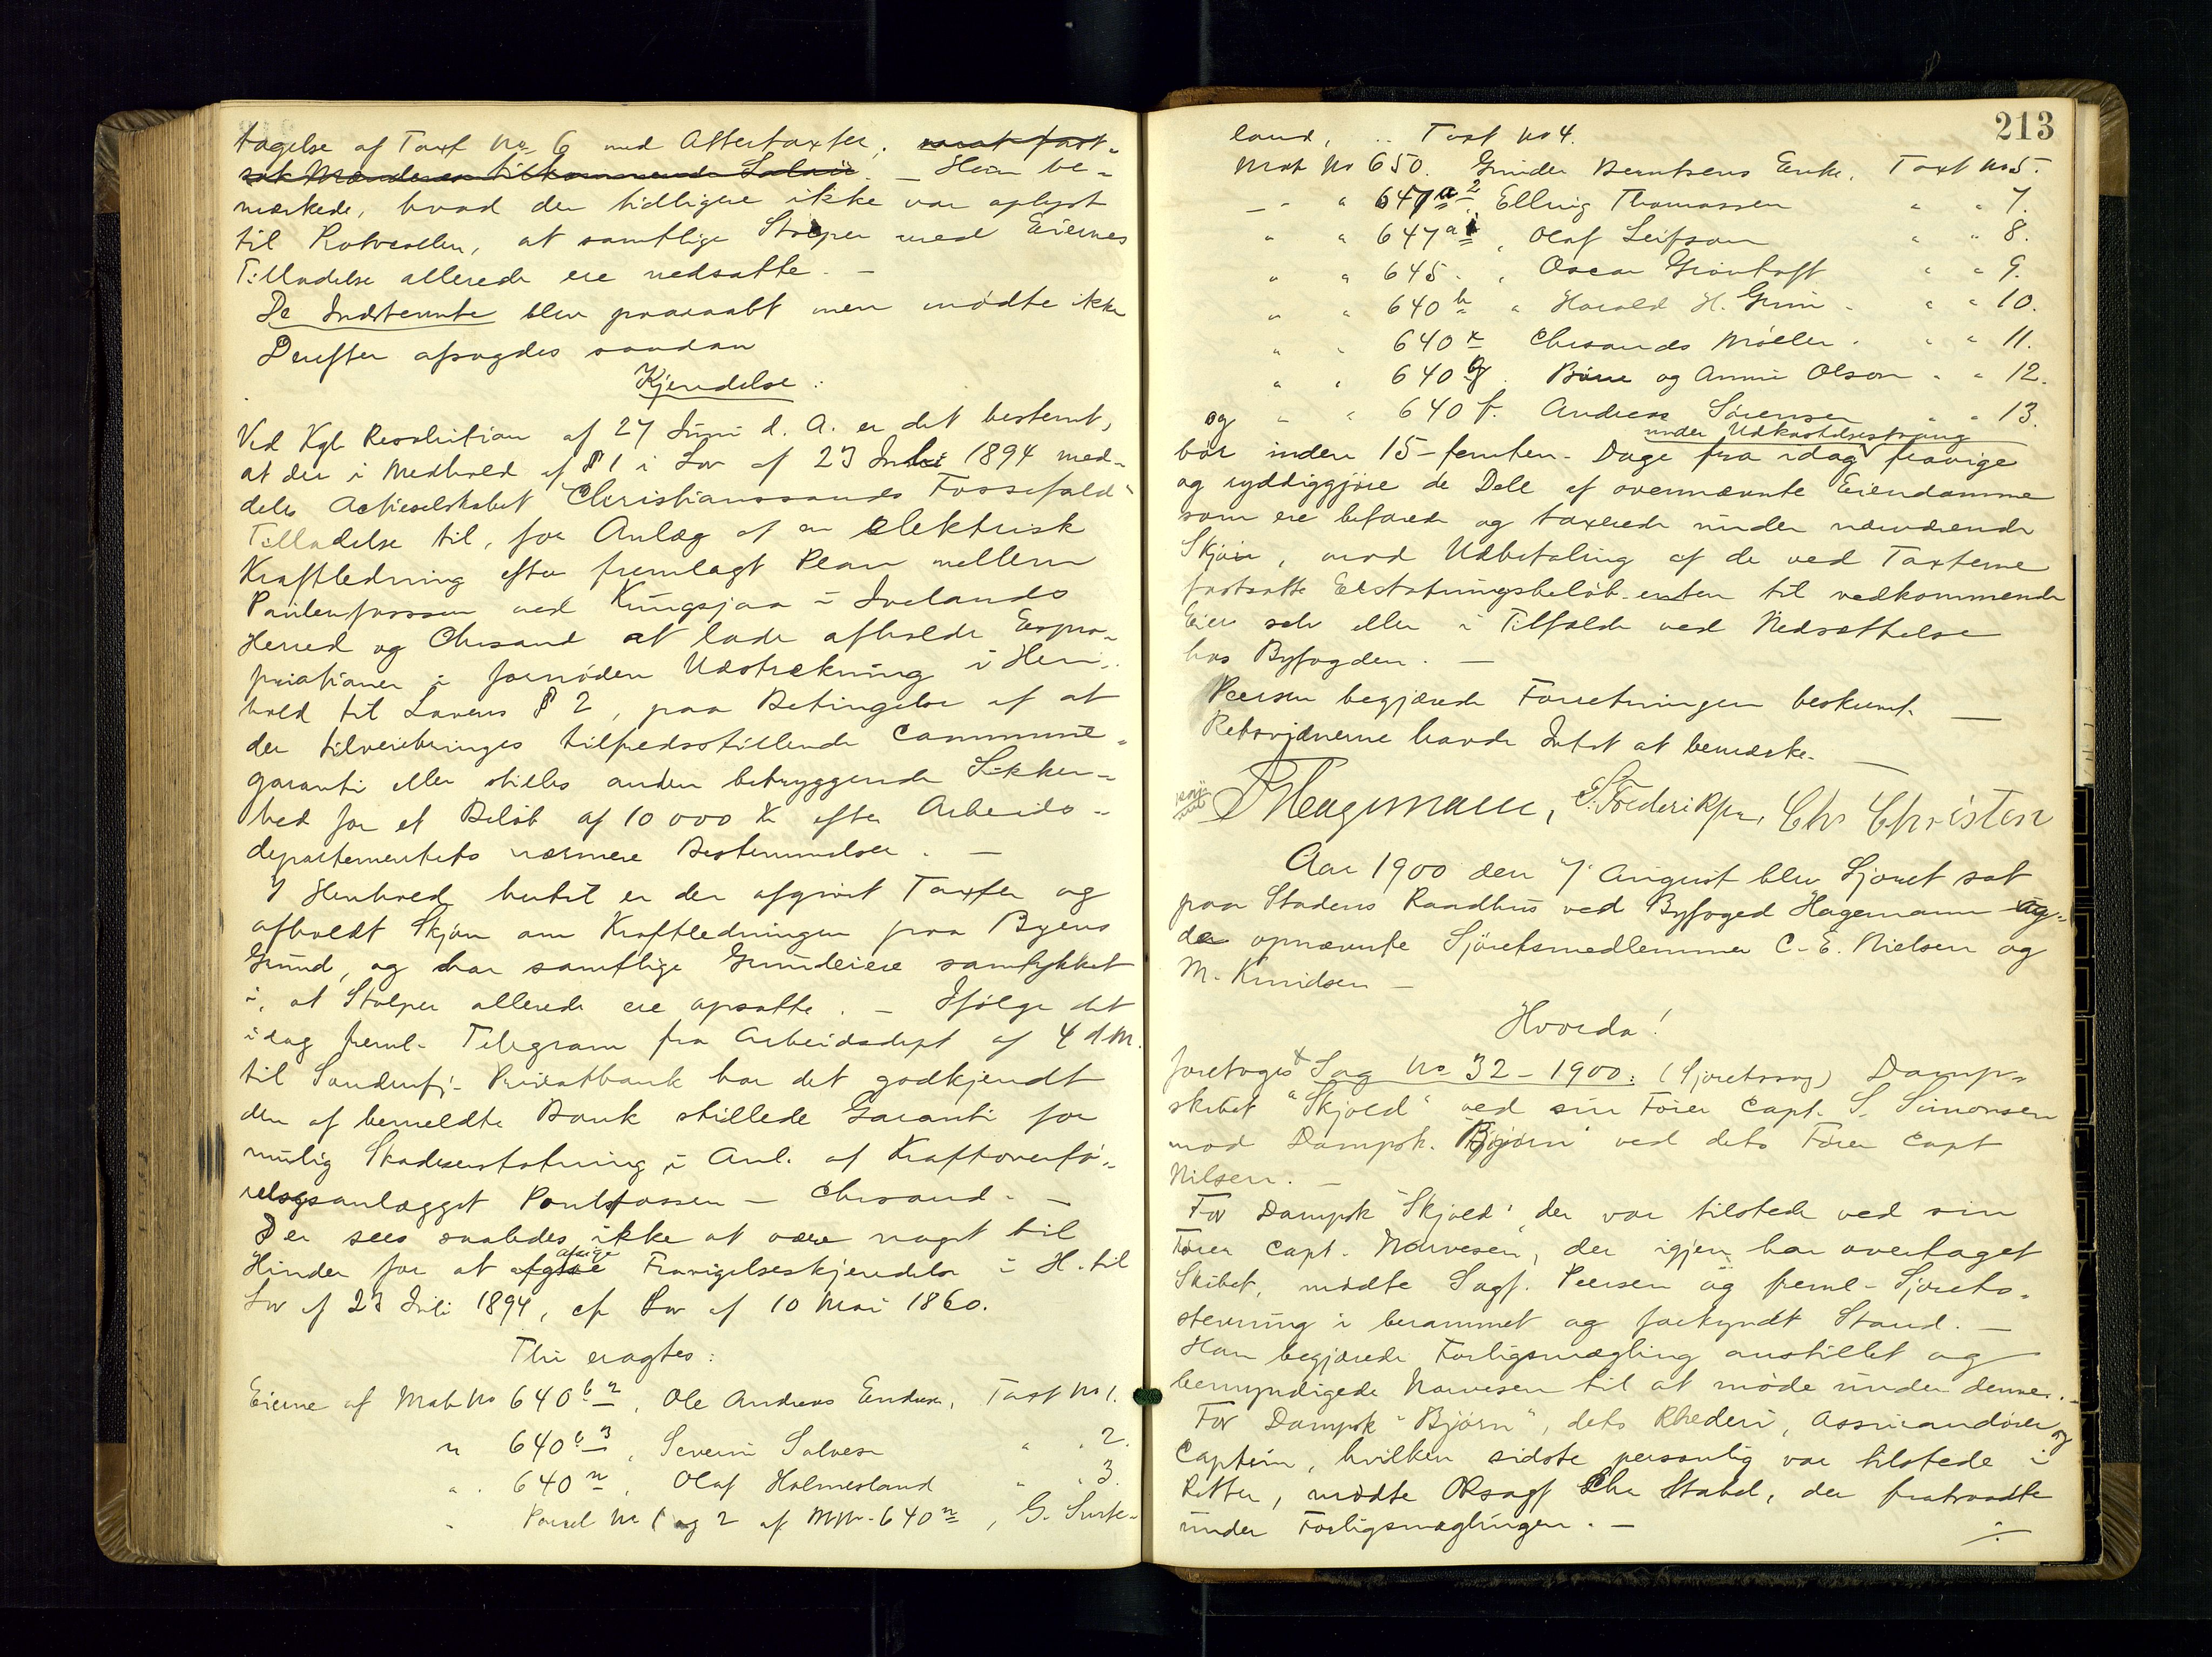 tagelse af Taxt No 6 med Aftertaxter, samt fast-
sat Mændenes tilkommende Salair. – Han be-
mærkede, hvad der tidligere ikke var oplyst
til Protocollen, at samtlige Stolper med Eiernes
Tilladelse allerede ere nedsatte. –
De Indstevnte blev paaraabt men mødte ikke
Derefter afsagdes saadan
Kjendelse:
Ved Kgl Resolution af 27 Juni d. A. er det bestemt,
at der i Medhold af § 1 i Lov af 23 Juli 1894 med-
deles Actieselskabet "Christianssands Fossefald"
Tilladelse til, for Anlæg af en elektrisk
Kraftledning efter fremlagt Plan mellem
Paulenfossen ved Kringsjaa i Ivelands
Herred og Chrsand at lade afholde Expro-
priationer i fornøden Udstrækning i Hen-
hold til Lovens § 2, paa Betingelse af at
der tilveiebringes tilfredsstillende Commune-
garanti eller stilles anden betryggende Sikker-
hed for et Beløb af 10 000 Kr efter Arbeids-
departementets nærmere Bestemmelser. –
I Henhold hertil er der afgivet Taxter og
afholdt Skjøn om Kraftledningen paa Byens
Grund, og har samtlige Grundeiere samtykket
i, at Stolper allerede ere opsatte. – Ifølge det
idag freml. Telegram fra Arbeidsdept af 4 d M.
til Søndenfj. Privatbank har det godkjendt
den af bemeldte Bank stillede Garanti for
mulig Skadeserstatning i Anl. af Kraftoverfø-
relsesanlægget Paulfossen – Chrsand. –
Der sees saaledes ikke at være noget til
Hinder for at afgive afsige Fravigelseskjendelse i H. til
Lov af 23 Juli 1894, cfr Lov af 10 Mai 1860.
Thi eragtes:
Eierne af Matr No 640 b 2, Ole Andreas Endresen, Taxt No 1.
" 640 b 3, Severin Salvesen " " 2.
" 640 n, Olaf Holmesland " " 3.
" Parcel No 1 og 2 af MNo 640 n, G. Surte-
213
land, .. Taxt No 4.
Matr No 650. Gunder Berntsens Enke, Taxt No 5.
– " " 647 a 2, Ellvig Thomassen " " 7.
" " 647 a 1, Olaf Leifson " " 8.
" " 645. , Oscar Grøntoft " " 9.
" " 640 h " Harald H. Grim - " " 10.
" " 640 x Chrsands Mølle . " " 11.
" " 640 g. Børre og Anna Olson " " 12.
og " " 640 f. Andreas Sørensen " " 13.
under Udkastelsestvang
bør inden 15 – femten – Dage fra idag fravige
og ryddiggjøre de Dele af ovennævnte Eiendomme
som ere befarede og taxerede under nærværende
Skjøn, mod Udbetaling af de ved Taxterne
fastsatte Erstatningsbeløb enten til vedkommende
Eier selv eller i Tilfælde ved Nedsættelse
hos Byfogden. –
Peersen begjærede Forretningen beskrevet. –
Retsvidnerne havde Intet at bemærke. –
FHagemann, S. Frederiksen, Chr Christen
Aar 1900 den 7 August blev Sjøret sat
paa Stadens Raadhus ved Byfoged Hagemann og
de opnævnte Sjøretsmedlemmer C. E. Nielsen og
M. Knudsen –
Hvorda!
foretoges Sag No 32 – 1900: (Sjøretssag) Damp-
skibet "Skjold" ved sin Fører Capt. S. Simonsen
mod Dampsk. "Bjørn" ved dets Fører Capt
Nilsen. –
For Dampsk "Skjold", der var tilstede ved sin
Fører Capt. Norvesen, der igjen har overtaget
Skibet, mødte Sagf. Peersen og freml. Sjørets-
stevning i berammet og forkyndt Stand. –
Han begjærede Forligsmægling anstillet og
bemyndigede Norvesen til at møde under denne. –
For Dampsk "Bjørn", dets Rhederi, Assurandører og
Captein, hvilken sidste personlig var tilstede i
Retten, mødte ORsagf Chr Stabel, der fratraadte
under Forligsmæglingen. –